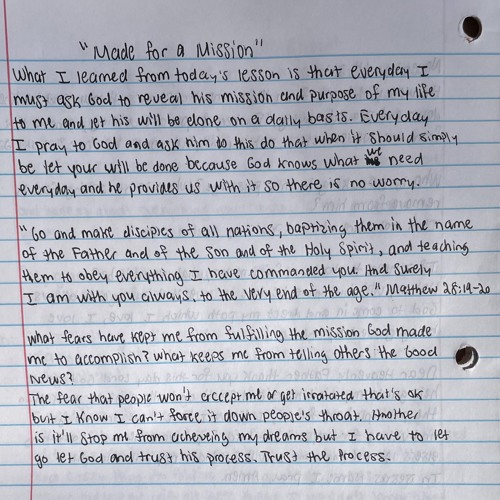 "Made for a Mission"
What I learned from today's lesson is that everyday I
must ask God to reveal his mission and purpose of my life
to me and let his will be done on a daily basis. Everyday
I pray to God and ask him to this do that when it should simply
be let your will be done because God knows what we need
everyday and he provides us with it so there is no worry.
"Go and make disciples of all nations, baptizing them in the name
of the Father and of the Son and of the Holy Spirit, and teaching
them to obey everything I have commanded you. And surely
I am with you always, to the very end of the age." Matthew 28:19-20
What fears have kept me from fulfilling the mission God made
me to accomplish? What keeps me from telling others the Good
News?
The fear that people won't erccept me or get irratated that's ok
but I know I can't force it down people's throat. Another
is it'll stop me from acheveing my dreams but I have to let
go let God and trust his process. Trust the Process.